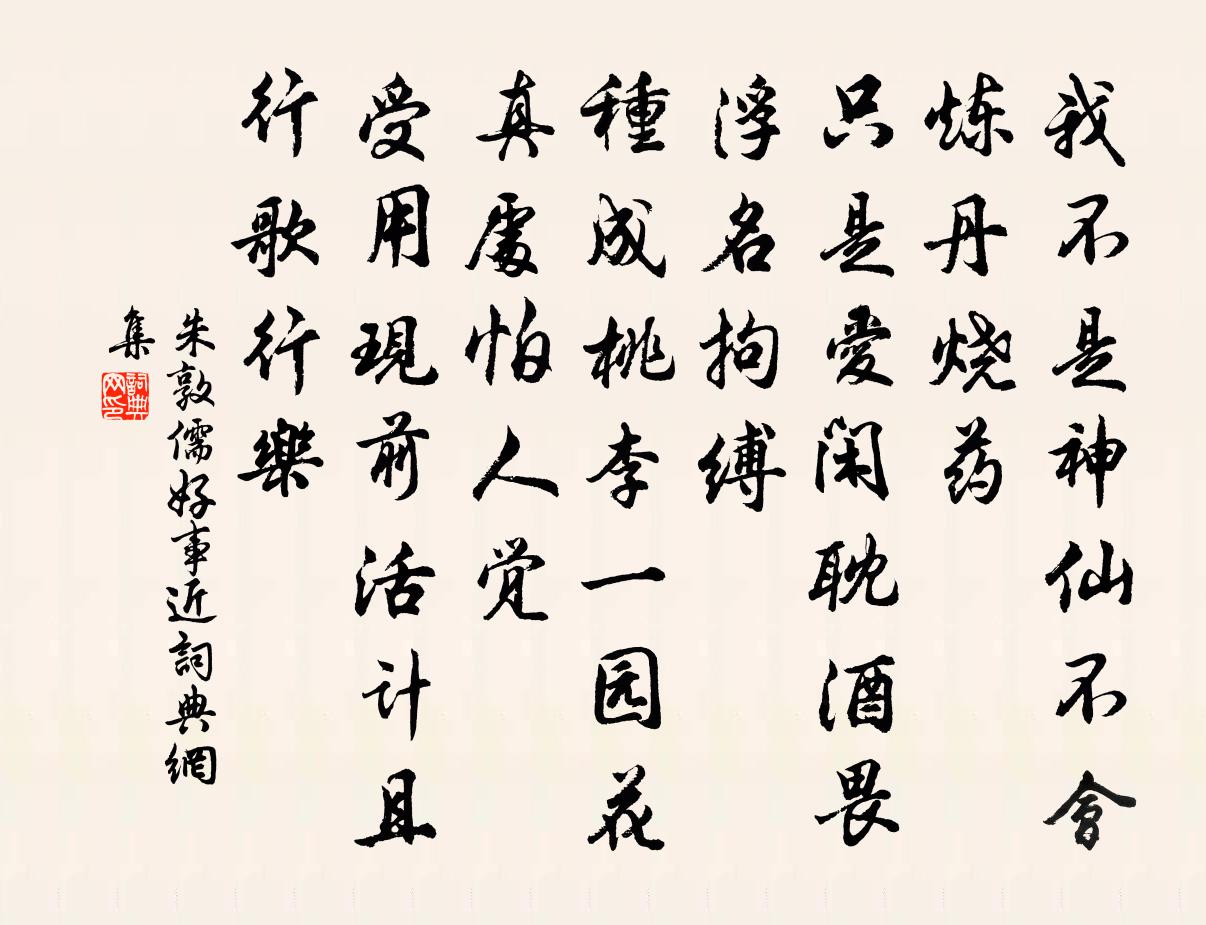 我不是神仙不會
炼丹烧药
只是愛闲耽酒畏
浮名拘縛
種成桃李一园花
真處怕人觉
受用現前活计且
行歌行樂
朱敦儒好事近詞典網
集
詞典
网印